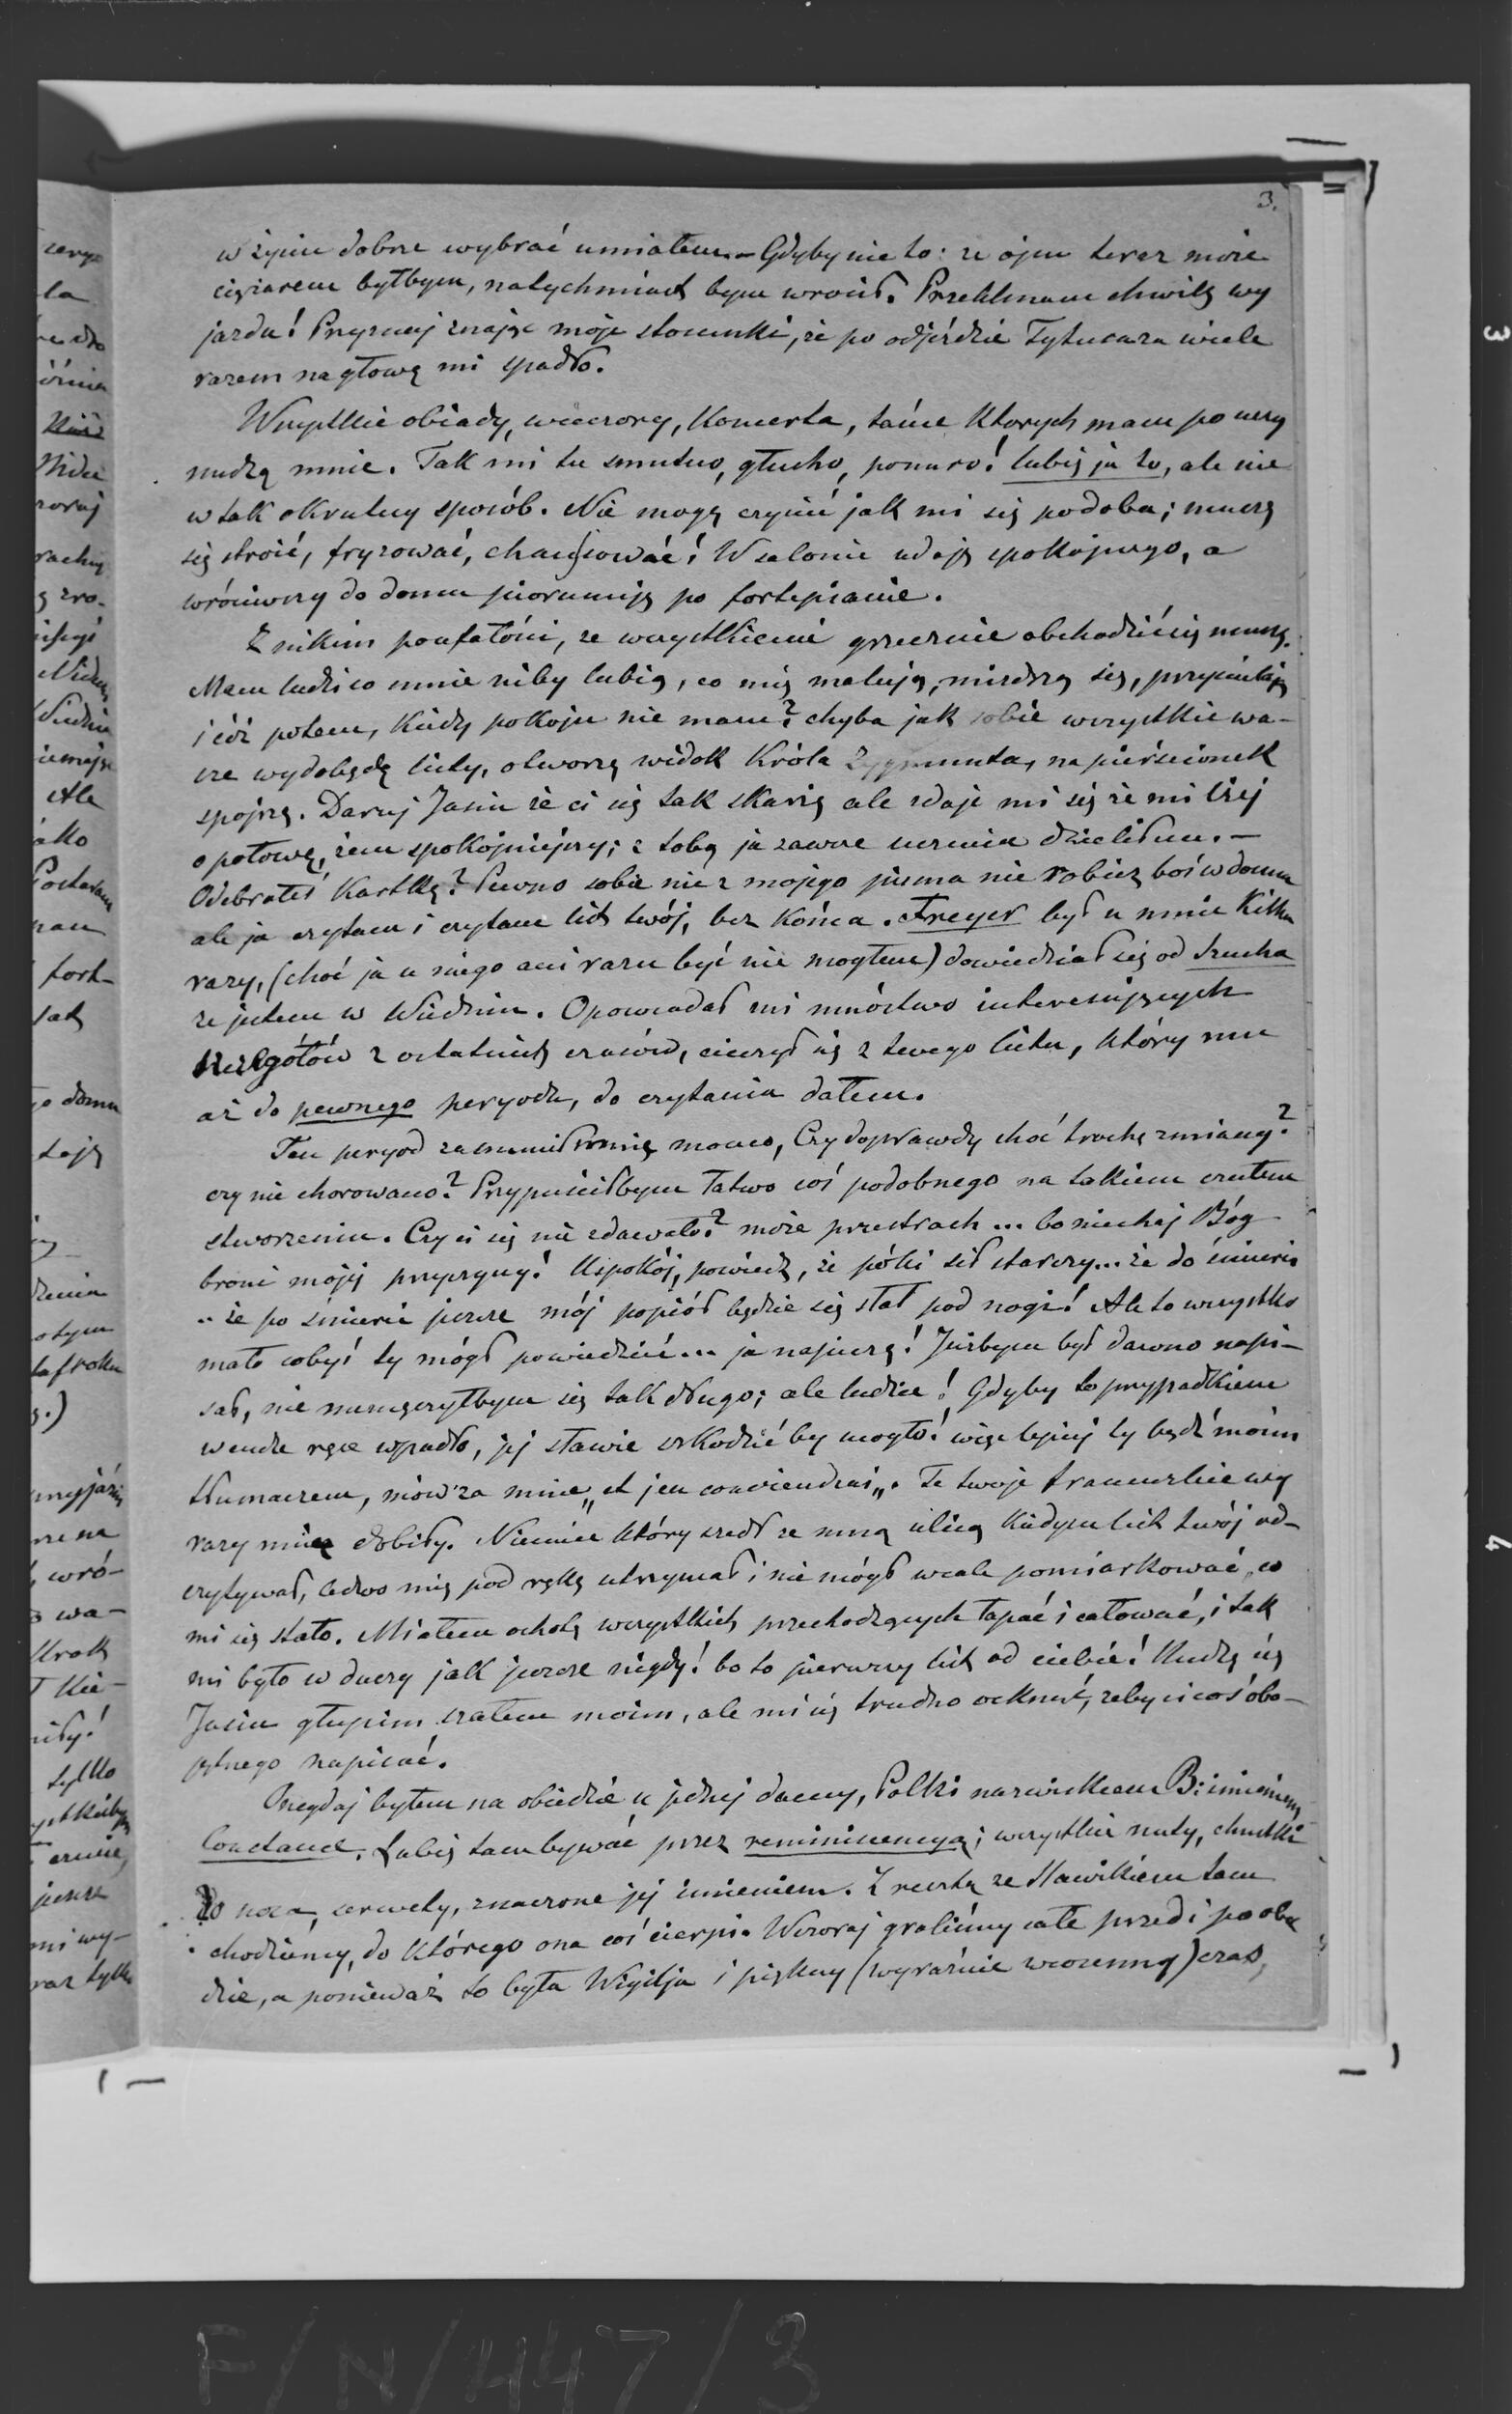 3.
w życiu dobrze wybrać umiałem. – Gdyby nie to: że ojcu teraz może
ciężarem byłbym, natychmiast bym wrócił. Przeklinam chwilę wy
jazdu! Przyznaj znając moje stosunki, że po odjeździe Tytusa za wiele
razem na głowę mi spadło.
Wszystkie obiady, wieczory, koncerta, tańce których mam po uszy
nudzą mnie. Tak mi tu smutno, głucho, ponuro! lubię ja to, ale nie
w tak okrutny sposób. Nie mogę czynić jak mi się podoba; muszę
się stroić, fryzować, chaussować! W salonie udaję spokojnego, a
wróciwszy do domu piorunuję po fortepianie.
Z nikim poufałości, ze wszystkiemi grzecznie obchodzić się muszę.
Mam ludzi co mnie niby lubią, co mię malują, mizdrzą się, przymilają
i cóż potem, kiedy pokoju nie mam? chyba jak sobie wszystkie wa-
sze wydobędę listy, otworzę widok Króla Zygmunta, na pierścionek
spojrzę. Daruj Jasiu że ci się tak skarżę ale zdaje mi się że mi lżej
o połowę, żem spokojniejszy; z tobą ja zawsze uczucia dzieliłem. –
Odebrałeś kartkę? Pewno sobie nic z mojego pisma nie robisz boś w domu
ale ja czytam i czytam list twój, bez końca. Freyer był u mnie kilka
razy, (choć ja u niego ani razu być nie mogłem) dowiedział się od Szucha
że jestem w Wiedniu. Opowiadał mi mnóstwo interesujących
szczegółów z ostatnich czasów, cieszył się z twego listu, który mu
aż do pewnego peryodu, do czytania dałem.
Ten peryod zasmucił mnię mocno, Czy doprawdy choć trochę zmiany?
czy nie chorowano? Przypuściłbym łatwo coś podobnego na takiem czułem
stworzeniu. Czy ci się nie zdawało? może przestrach ... bo niechaj Bóg
broni mojej przyczyny! Uspokój, powiedz, że póki sił starczy... że do śmierci
.. że po śmierci jeszcze mój popiół będzie się słał pod nogi! Ale to wszystko
mało cobyś ty mógł powiedzieć ... ja napiszę! Jużbym był dawno napi-
sał, nie męczyłbym się tak długo; ale ludzie! Gdyby to przypadkiem
w cudze ręce wpadło, jej sławie szkodzić by mogło! więc lepiej ty bądź moim
tłumaczem, mów za mnie „et j'en conviendrai„. Te twoje francuzkie wy
razy mnie dobiły. Niemiec który szedł ze mną ulicą kiedym list twój od-
czytywał, ledwo mię pod rękę utrzymał i nie mógł wcale pomiarkować, co
mi się stało. Miałem ochotę wszystkich przechodzących łapać i całować, i tak
mi było w duszy jak jeszcze nigdy! bo to pierwszy list od ciebie! Nudzę cię
Jasiu głupim szałem moim, ale mi się trudno ocknąć, żeby ci coś obo-
jętnego napisać.
Onegdaj byłem na obiedzie u jednej damy, Polki nazwiskiem B: imieniem
Constance. Lubię tam bywać przez reminiscencyą; wszystkie nuty, chustki
do nosa, serwety, znaczone jej imieniem. Zresztą ze Slawikiem tam
chodziemy, do którego ona coś cierpi. Wczoraj graliśmy całe przed i po obie
dzie, a ponieważ to była Wigilja i piękny (wyraźnie wiosenny) czas,
F/N/447/3
3
4